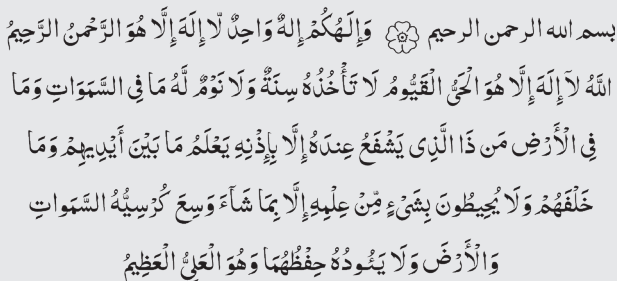 بسم الله الرحمن الرحيم وَإِلَٰهُكُمْ إِلهٌ وَاحِدٌ لَّا إِلَهَ إِلَّا هُوَ الرَّحْمنُ الرَّحِيمُ
اللهُ لآ إِلَهَ إِلَّا هُوَ الْحَيُّ الْقَيُّومُ لَا تَأْخُذُهُ سِنَةٌ وَلَا نَوْمٌ لَّهُ مَا فِي السَّمَوَاتِ وَمَا
فِي الْأَرْضِ مَن ذَا الَّذِى يَشْفَعُ عِندَهُ إِلَّا بِإِذْنِهِ يَعْلَمُ مَا بَيْنَ أَيْدِيهِمْ وَمَا
خَلْفَهُمْ وَلَا يُحِيطُونَ بِشَىْءٍ مِّنْ عِلْمِهِ إِلَّا بِمَا شَآءَ وَسِعَ كُرْسِيُّهُ السَّمَواتِ
وَالْأَرْضَ وَلَا يَئُودُهُ حِفْظُهُمَا وَهُوَ الْعَلِيُّ الْعَظِيمُ